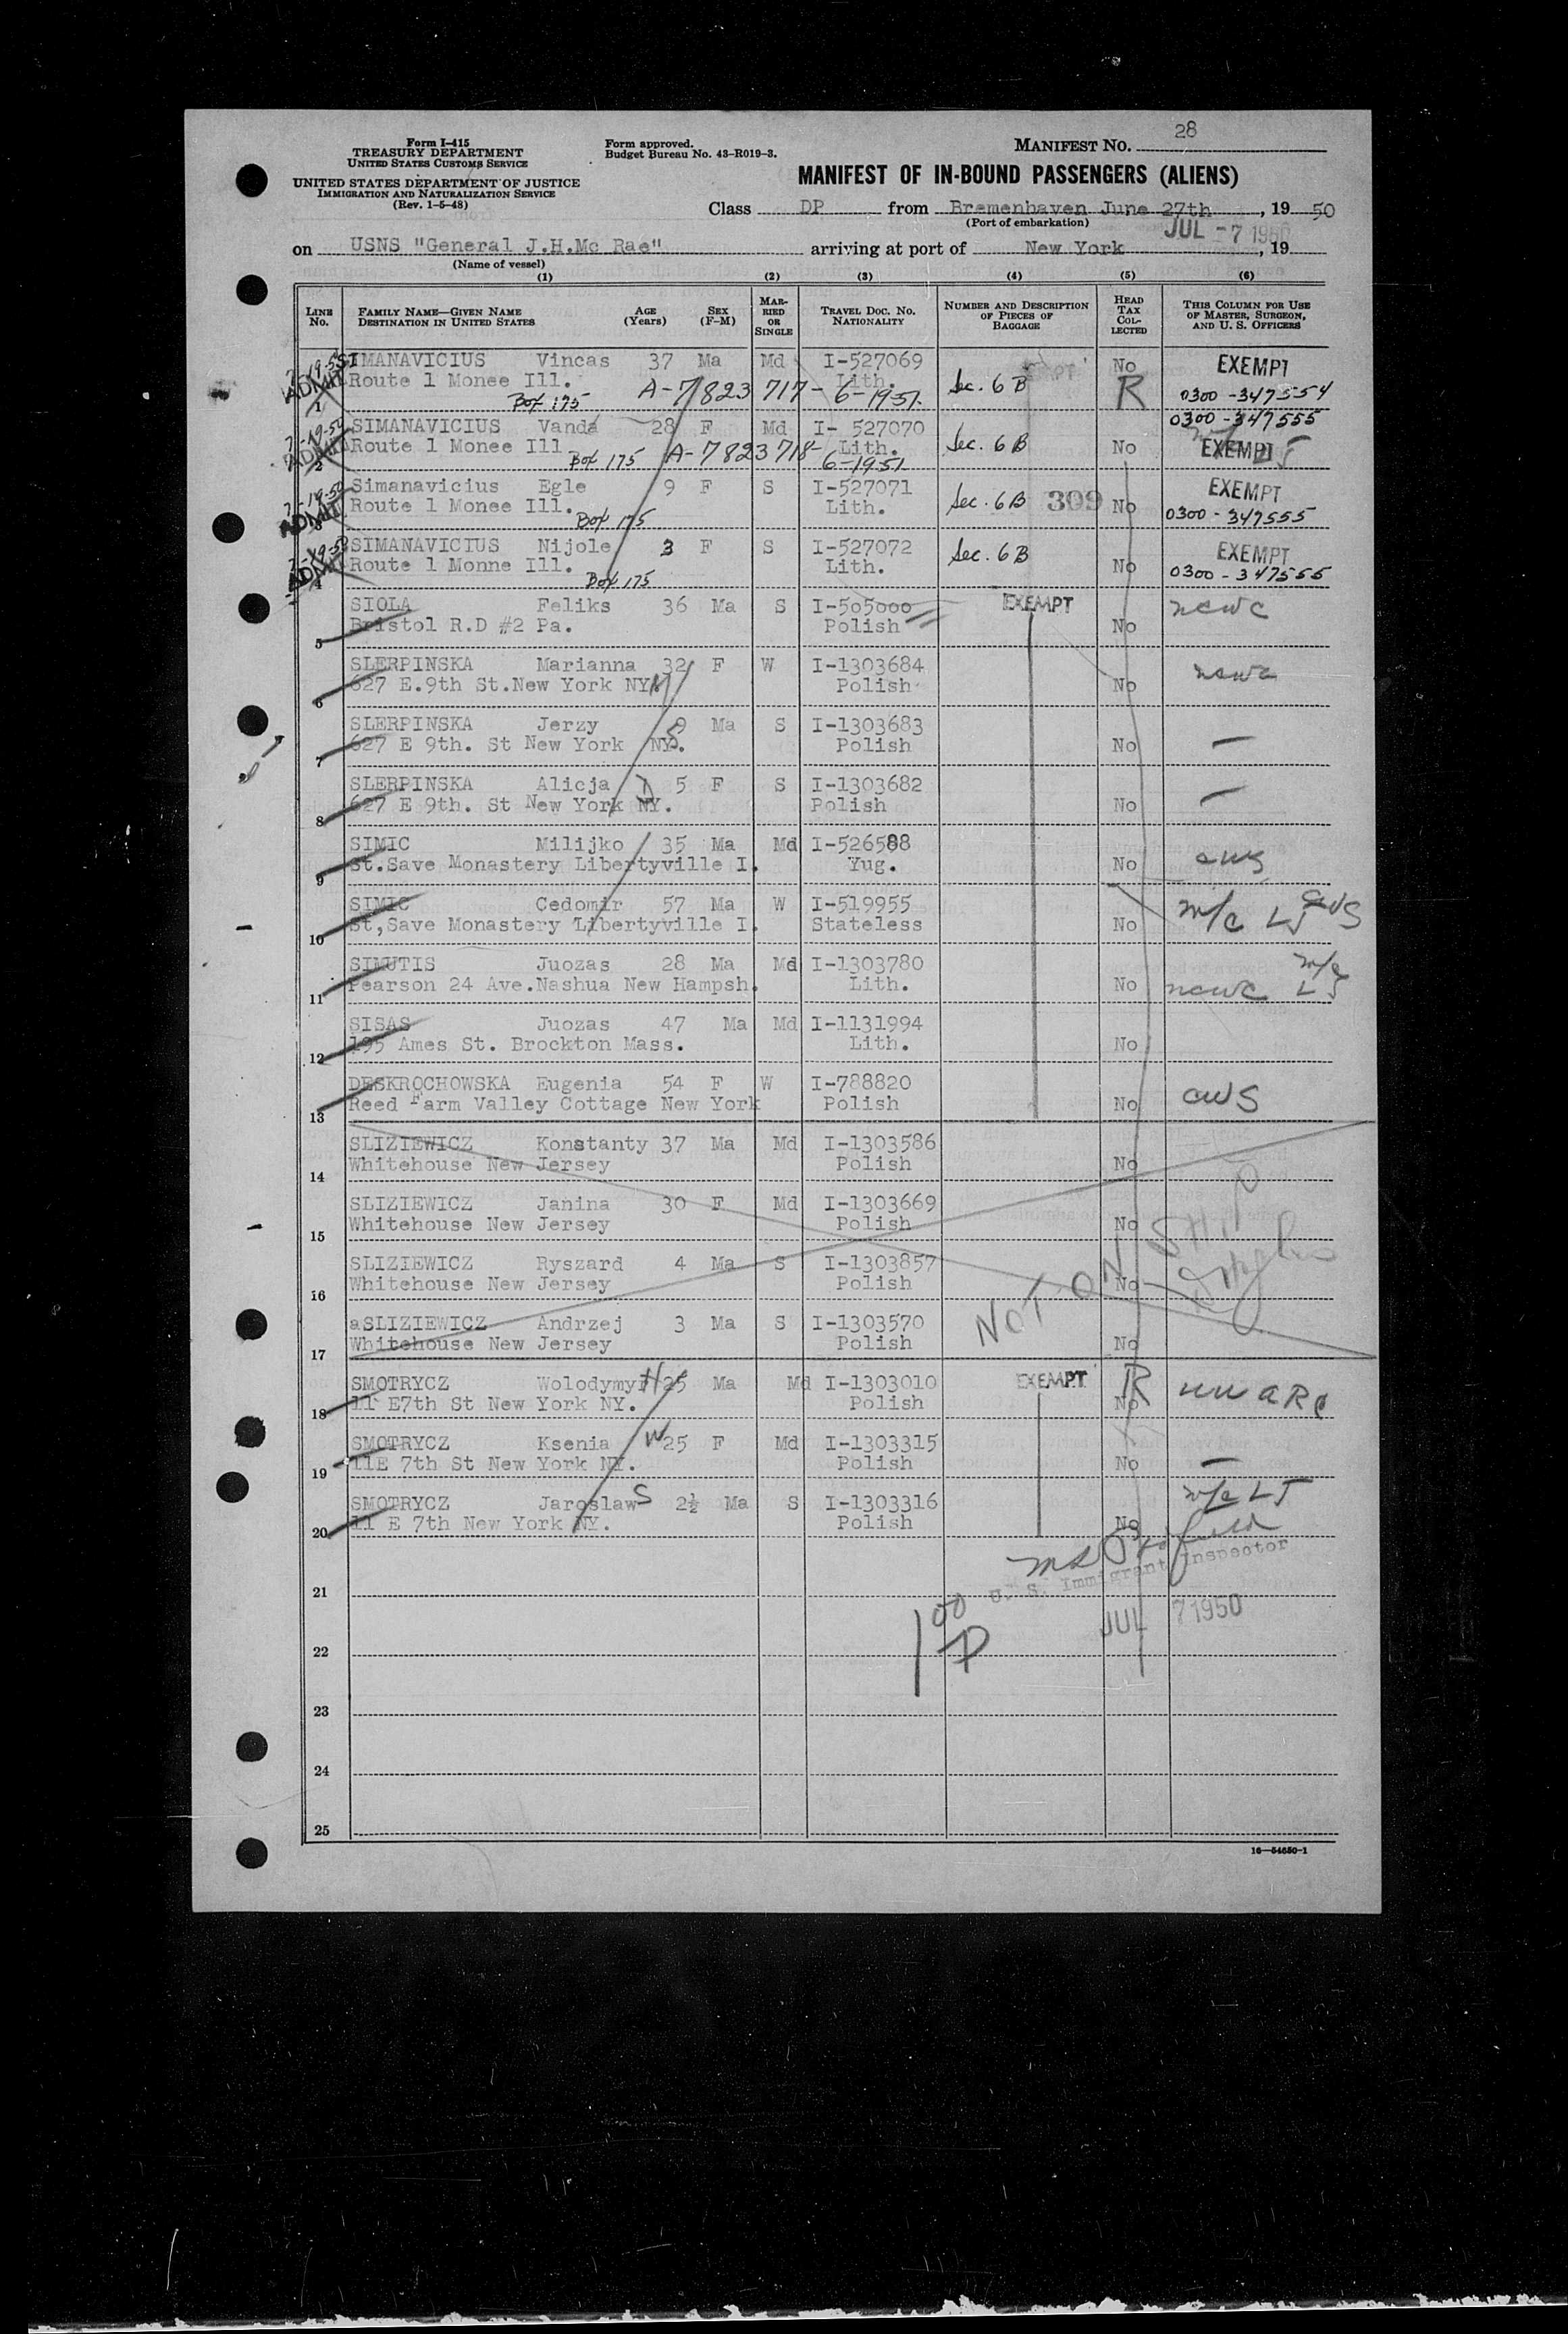 28
Form I-415
TREASURY DEPARTMENT
UNITED STATES CUSTOMS SERVICE
Form approved.
Budget Bureau No. 43-R019-3.
MANIFEST NO.
UNITED STATES DEPARTMENT OF JUSTICE
IMMIGRATION AND NATURALIZATION SERVICE
(Rev. 1-5-48)
MANIFEST OF IN-BOUND PASSENGERS (ALIENS)
Class DP from Bremenhaven June 27th, 19 50
(Port of embarkation)
JUL -7 1950
on USNS "General J.H.Mc Rae" arriving at port of New York, 19
(Name of vessel)
(1) (2) (3) (4) (5) (6)
LINE NO. FAMILY NAME—GIVEN NAME DESTINATION IN UNITED STATES AGE (Years) SEX (F-M) MARRIED OR SINGLE TRAVEL DOC. NO. NATIONALITY NUMBER AND DESCRIPTION OF PIECES OF BAGGAGE HEAD TAX COLLECTED THIS COLUMN FOR USE OF MASTER, SURGEON, AND U. S. OFFICERS
SIMANAVICIUS Vincas 37 Ma Md I-527069 No EXEMPT
ADMIT Route 1 Monee Ill. A-7823 717- Lith. 6-1951. Sec. 6 B R 0300-347554
1 Box 175
7-19-50 SIMANAVICIUS Vanda 28 F Md I- 527070 0300-347555
ADMIT Route 1 Monee Ill. A-7823718- Lith. Sec. 6 B No EXEMPT
2 Box 175 6-1951
7-19-50 Simanavicius Egle 9 F S I-527071 Sec. 6 B 309 No EXEMPT
ADMIT Route 1 Monee Ill. Lith. 0300-347555
Box 175
7-19-50 SIMANAVICIUS Nijole 3 F S I-527072 Sec. 6 B EXEMPT
ADMIT Route 1 Monne Ill. Lith. No 0300-347555
Box 175
SIOLA Feliks 36 Ma S I-505000 EXEMPT ncwc
5 Bristol R.D #2 Pa. Polish No
SLERPINSKA Marianna 32 F W I-1303684 ncwc
6 627 E.9th St.New York NY Polish No
SLERPINSKA Jerzy 9 Ma S I-1303683
7 627 E 9th. St New York NY. Polish No
SLERPINSKA Alicja 5 F S I-1303682
8 627 E 9th. St New York NY. Polish No
SIMIC Milijko 35 Ma Md I-526588
9 St.Save Monastery Libertyville I. Yug. No cws
SIMIC Cedomir 57 Ma W I-519955 m/c LJ cws
10 St,Save Monastery Libertyville I. Stateless No
SIMUTIS Juozas 28 Ma Md I-1303780 m/c
11 Pearson 24 Ave.Nashua New Hampsh. Lith. No ncwc LJ
SISAS Juozas 47 Ma Md I-1131994
12 195 Ames St. Brockton Mass. Lith. No
DESKROCHOWSKA Eugenia 54 F W I-788820 cws
13 Reed Farm Valley Cottage New York Polish No
SLIZIEWICZ Konstanty 37 Ma Md I-1303586
14 Whitehouse New Jersey Polish No
SLIZIEWICZ Janina 30 F Md I-1303669
15 Whitehouse New Jersey Polish No
SLIZIEWICZ Ryszard 4 Ma S I-1303857
16 Whitehouse New Jersey Polish No
NOT ON SHIP
aSLIZIEWICZ Andrzej 3 Ma S I-1303570
17 Whitehouse New Jersey Polish No
SMOTRYCZ Wolodymyr H 25 Ma Md I-1303010 EXEMPT R
18 11 E7th St New York NY. Polish No
SMOTRYCZ Ksenia W 25 F Md I-1303315
19 11E 7th St New York NY. Polish No
SMOTRYCZ Jaroslaw S 2½ Ma S I-1303316 m/c LJ
20 11 E 7th New York NY. Polish No
U. S. Immigrant Inspector
21
JUL 7 1950
22
23
24
25
16—54650-1